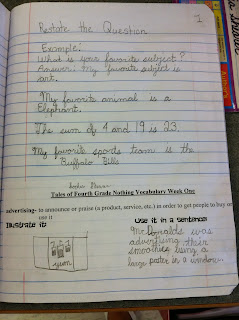 1
Restate the Question
Example:
What is your favorite subject?
Answer: My favorite subject is
art.
My favorite animal is a
Elephant.
The sum of 4 and 19 is 23.
My favorite sports team is the
Buffalo Bills
Tales of Fourth Grade Nothing Vocabulary Week One
advertising- to announce or praise (a product, service, etc.) in order to get people to buy or
use it
Illustrate it:
Use it in a sentence:
Mc Donalds was
advertising their
smoothies using a
large poster in a window.